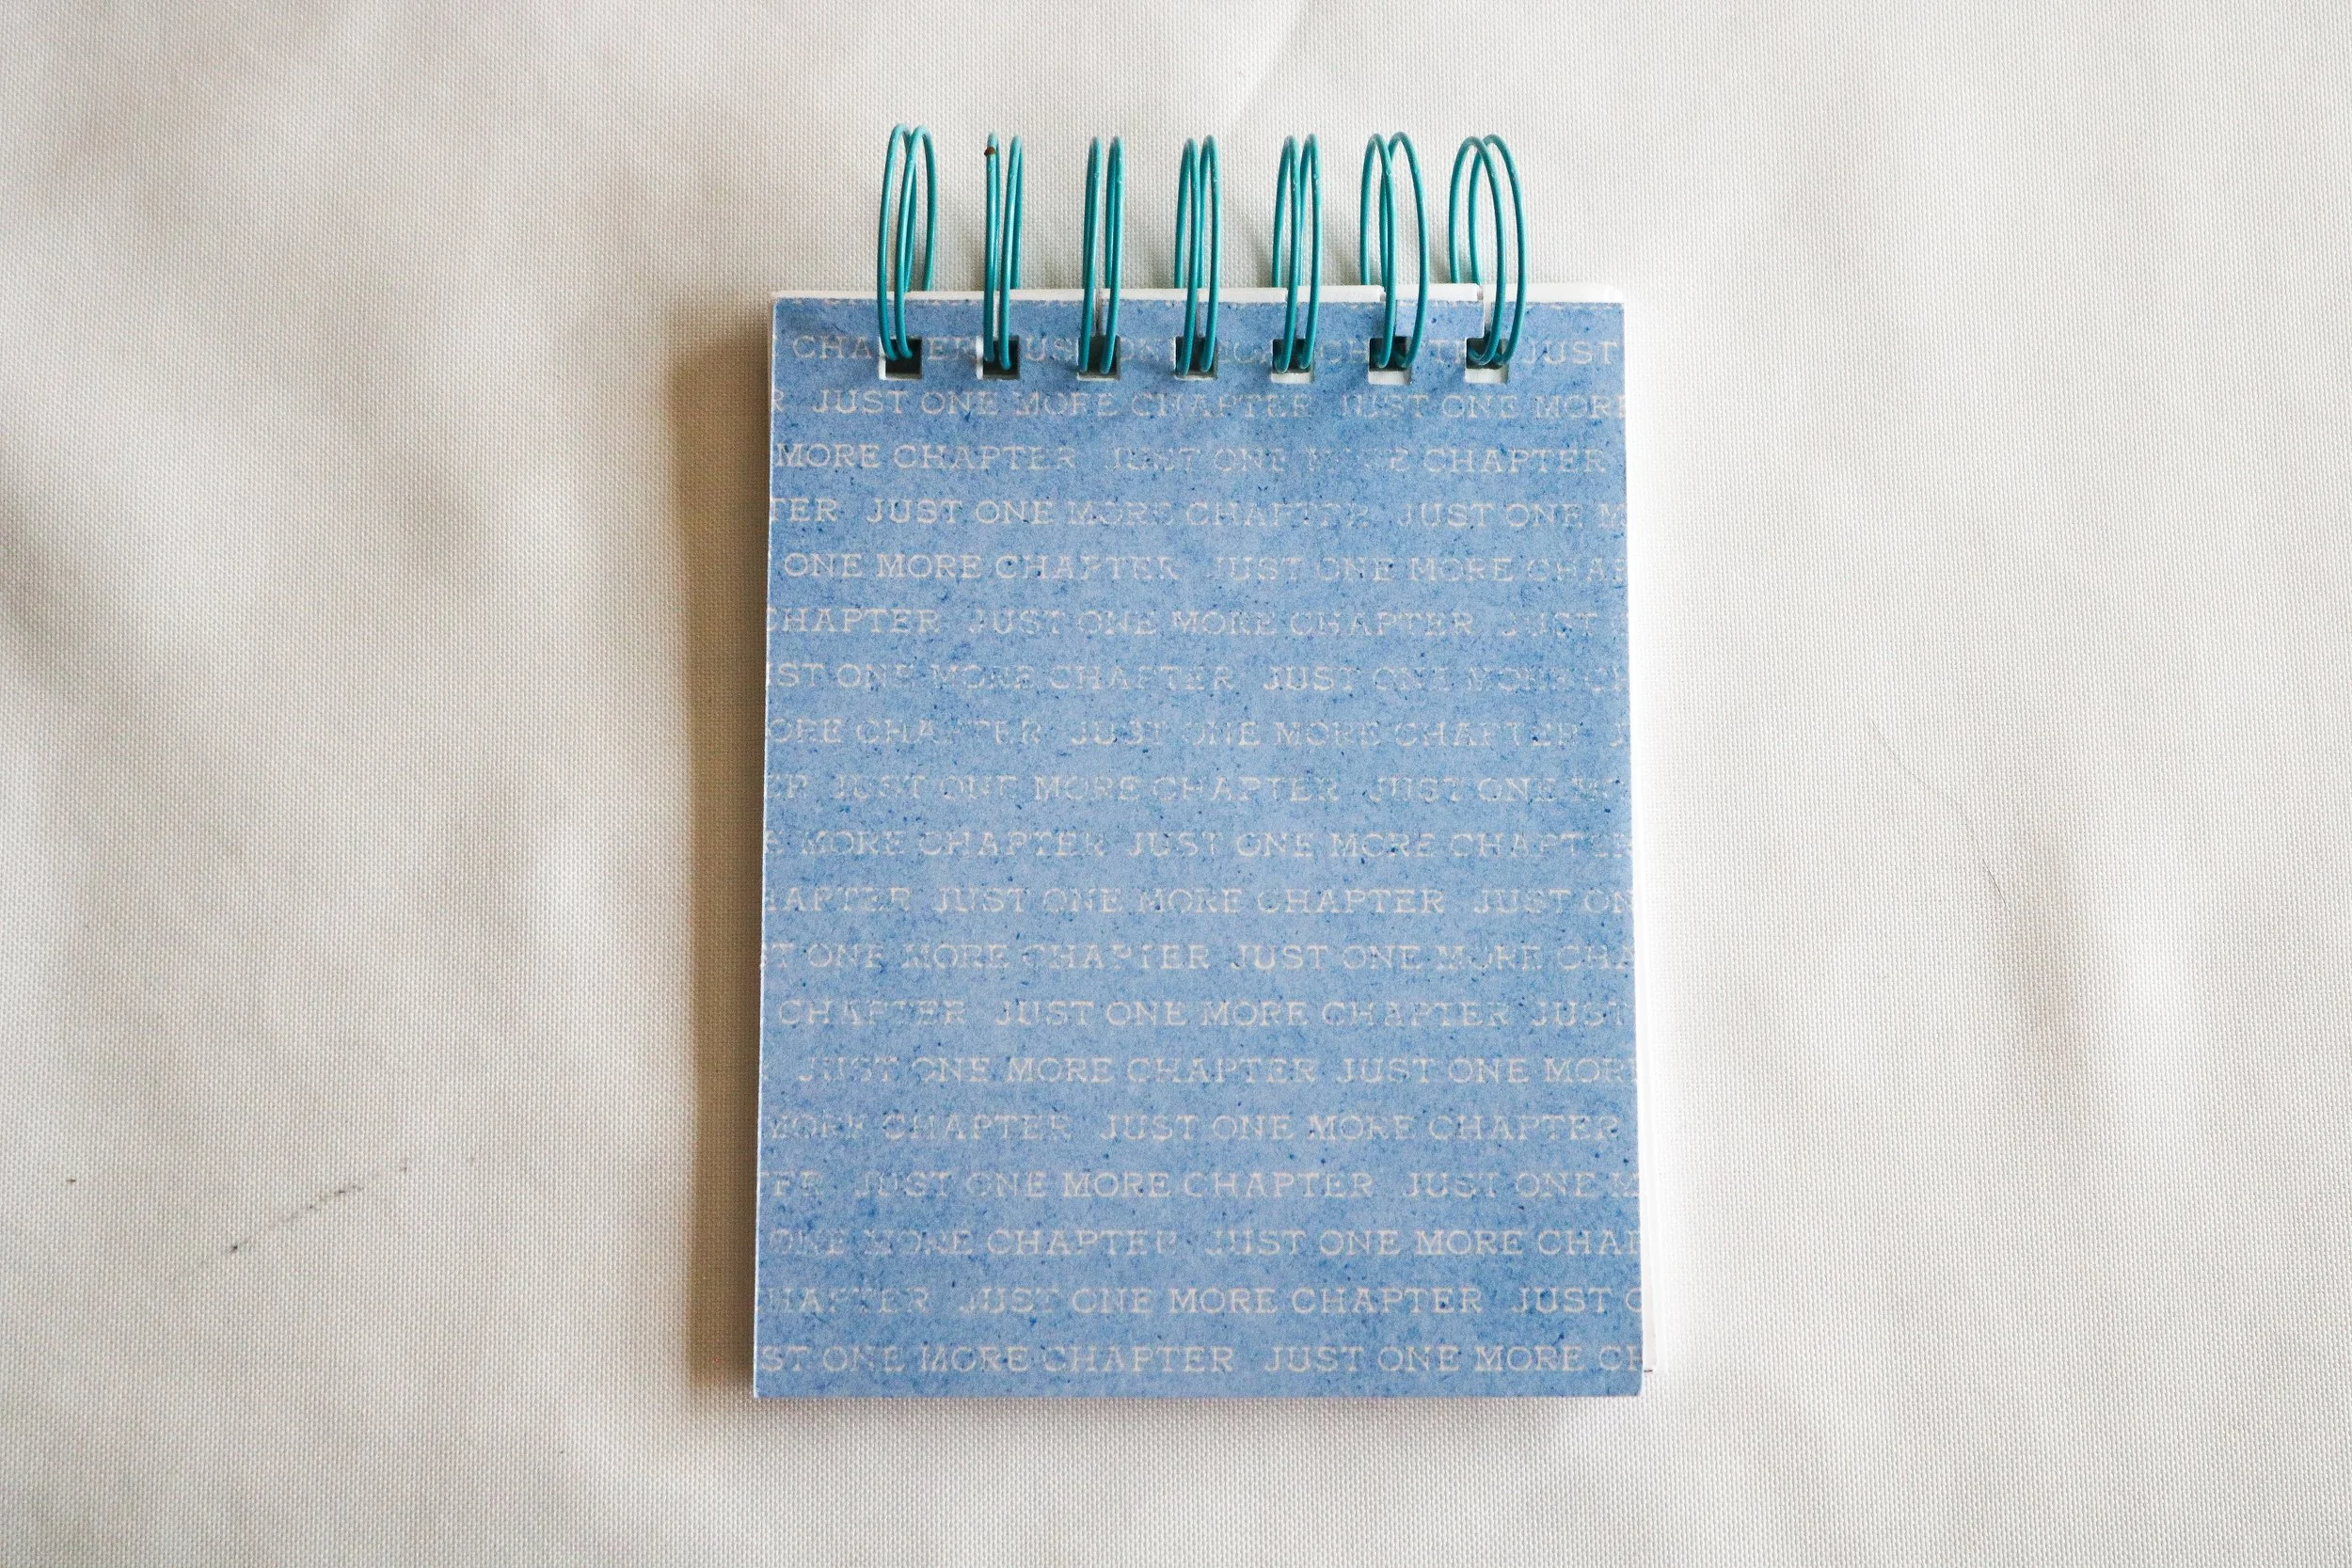 CHAPTER JUST ONE MORE CHAPTER JUST
R JUST ONE MORE CHAPTER JUST ONE MORE
MORE CHAPTER JUST ONE MORE CHAPTER
TER JUST ONE MORE CHAPTER JUST ONE M
ONE MORE CHAPTER JUST ONE MORE CHAP
CHAPTER JUST ONE MORE CHAPTER JUST
IST ONE MORE CHAPTER JUST ONE MORE CH
ORE CHAPTER JUST ONE MORE CHAPTER J
ER JUST ONE MORE CHAPTER JUST ONE MO
E MORE CHAPTER JUST ONE MORE CHAPTER
HAPTER JUST ONE MORE CHAPTER JUST ON
T ONE MORE CHAPTER JUST ONE MORE CHA
CHAPTER JUST ONE MORE CHAPTER JUST
JUST ONE MORE CHAPTER JUST ONE MOR
MORE CHAPTER JUST ONE MORE CHAPTER
ER JUST ONE MORE CHAPTER JUST ONE M
ONE MORE CHAPTER JUST ONE MORE CHAP
HAPTER JUST ONE MORE CHAPTER JUST O
ST ONE MORE CHAPTER JUST ONE MORE CH